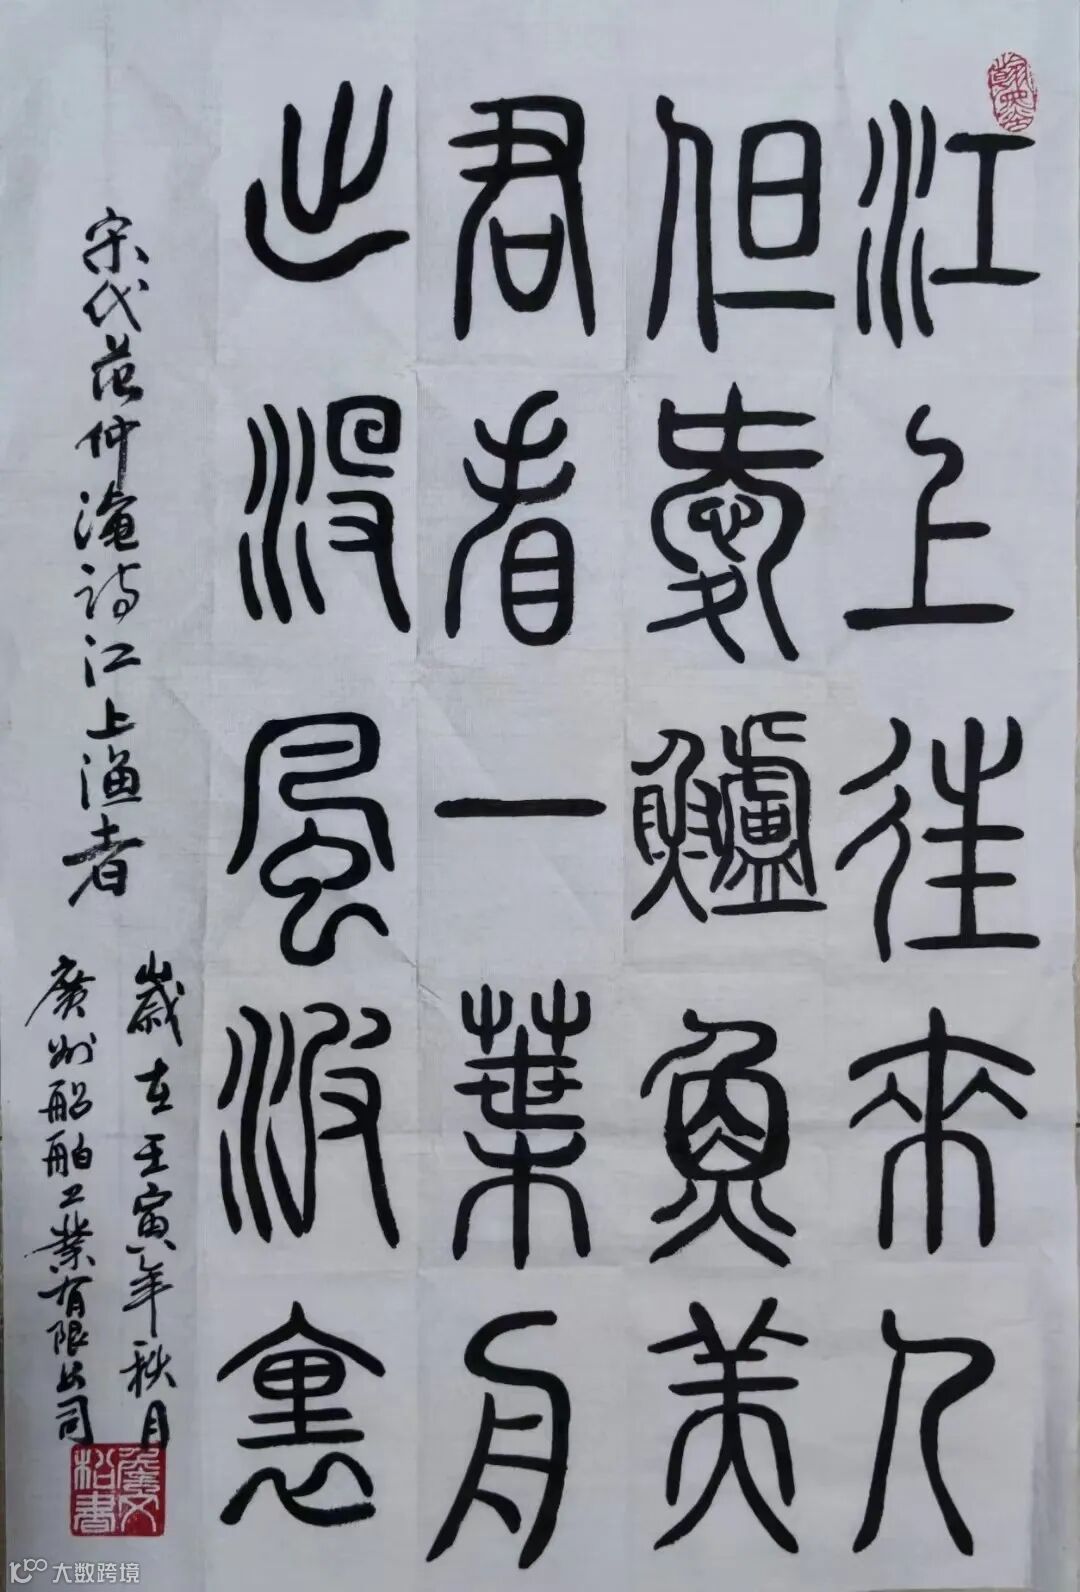 江上往來人
但愛鱸魚美
君看一葉舟
出沒風波裏
宋代范仲淹诗江上渔者
歲在壬寅年秋月
廣州船舶工業有限公司
文松書
大数跨境